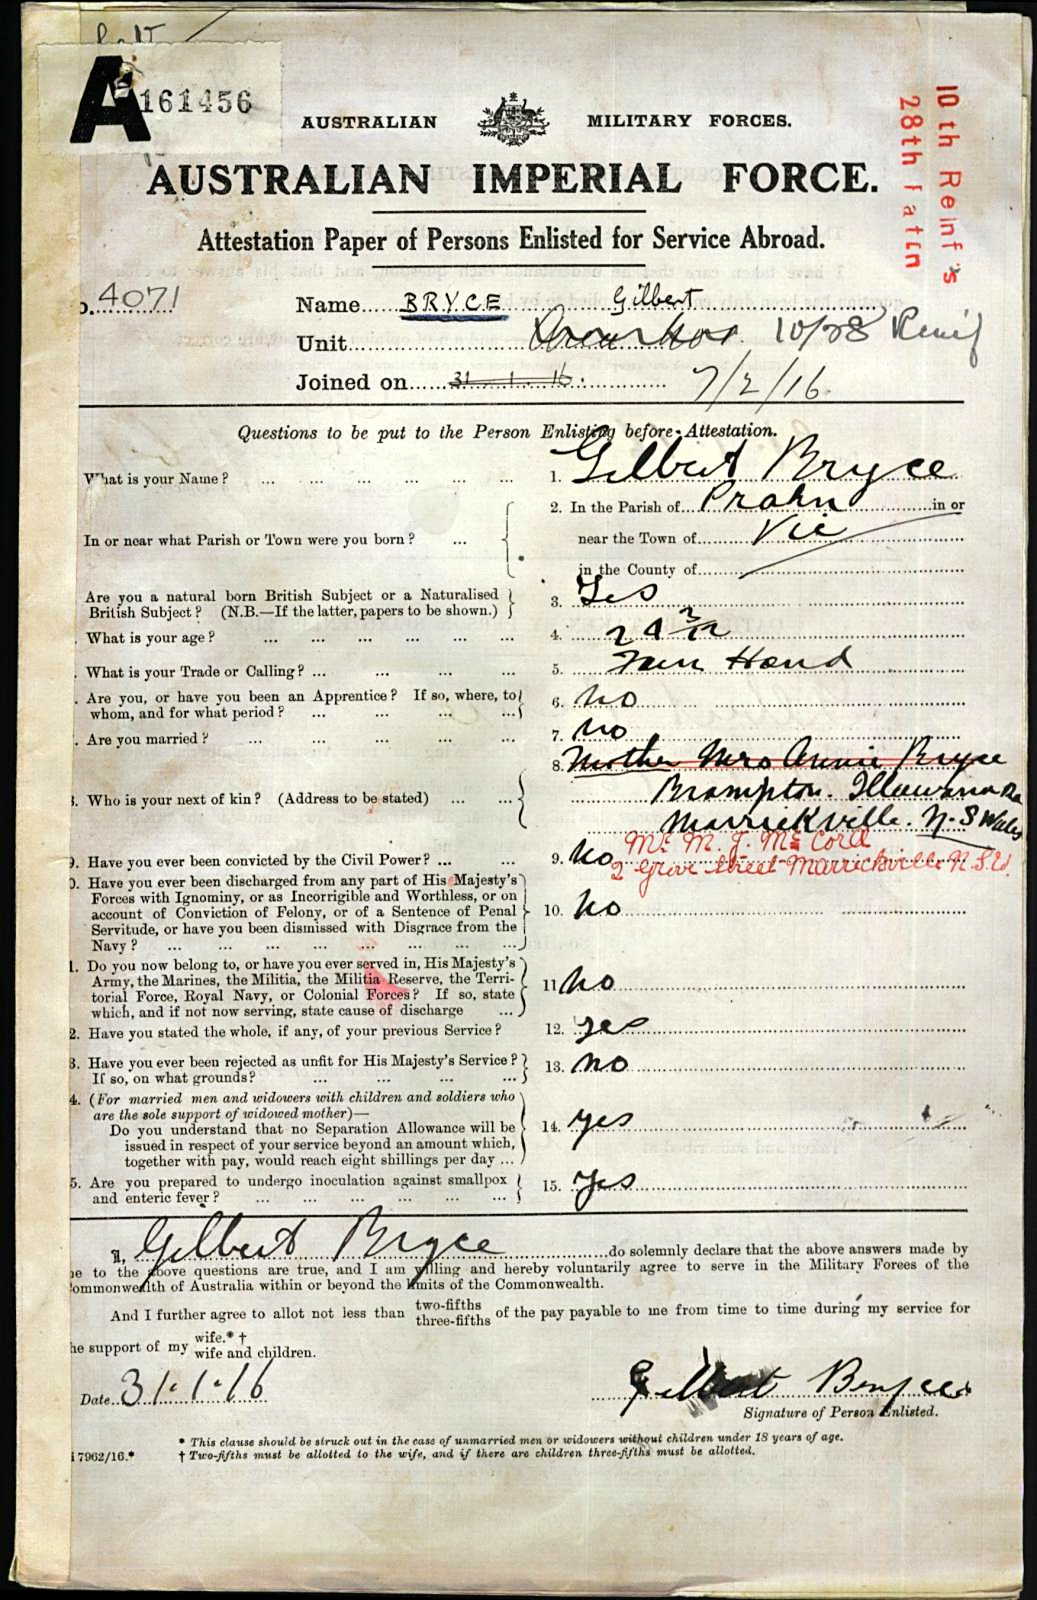 A 161456
AUSTRALIAN MILITARY FORCES.
10th Reinf's
28th Battn
AUSTRALIAN IMPERIAL FORCE.
Attestation Paper of Persons Enlisted for Service Abroad.
o. 4071
Name BRYCE Gilbert
Unit 10/28 Reinf
Joined on 31.1.16. 7/2/16.
Questions to be put to the Person Enlisting before Attestation.
What is your Name? ... 1. Gilbert Bryce
In or near what Parish or Town were you born? ... 2. In the Parish of Prahn in or
near the Town of Vic
in the County of
Are you a natural born British Subject or a Naturalised
British Subject? (N.B.—If the latter, papers to be shown.) 3. Yes
. What is your age? ... 4. 24 3/12
. What is your Trade or Calling? ... 5. Farm Hand
. Are you, or have you been an Apprentice? If so, where, to
whom, and for what period? ... 6. No
. Are you married? ... 7. No
8. Mother Mrs Annie Bryce
8. Who is your next of kin? (Address to be stated) ... Brampton. Illawarra Rd
Marrickville. N. S Wales
Mr M. J. Mc Cord
9. Have you ever been convicted by the Civil Power? ... 9. No 2 Grove Street Marrickville N.S.W.
0. Have you ever been discharged from any part of His Majesty's
Forces with Ignominy, or as Incorrigible and Worthless, or on
account of Conviction of Felony, or of a Sentence of Penal
Servitude, or have you been dismissed with Disgrace from the
Navy? ... 10. No
1. Do you now belong to, or have you ever served in, His Majesty's
Army, the Marines, the Militia, the Militia Reserve, the Terri-
torial Force, Royal Navy, or Colonial Forces? If so, state
which, and if not now serving, state cause of discharge ... 11 No
2. Have you stated the whole, if any, of your previous Service? 12. Yes
3. Have you ever been rejected as unfit for His Majesty's Service?
If so, on what grounds? ... 13. No
4. (For married men and widowers with children and soldiers who
are the sole support of widowed mother)—
Do you understand that no Separation Allowance will be
issued in respect of your service beyond an amount which,
together with pay, would reach eight shillings per day ... 14. Yes
5. Are you prepared to undergo inoculation against smallpox
and enteric fever? ... 15. Yes
I, Gilbert Bryce do solemnly declare that the above answers made by
e to the above questions are true, and I am willing and hereby voluntarily agree to serve in the Military Forces of the
ommonwealth of Australia within or beyond the limits of the Commonwealth.
And I further agree to allot not less than two-fifths three-fifths of the pay payable to me from time to time during my service for
he support of my wife.* † wife and children.
Date 31.1.16 Gilbert Bryce
Signature of Person Enlisted.
* This clause should be struck out in the case of unmarried men or widowers without children under 18 years of age.
17962/16.* † Two-fifths must be allotted to the wife, and if there are children three-fifths must be allotted.